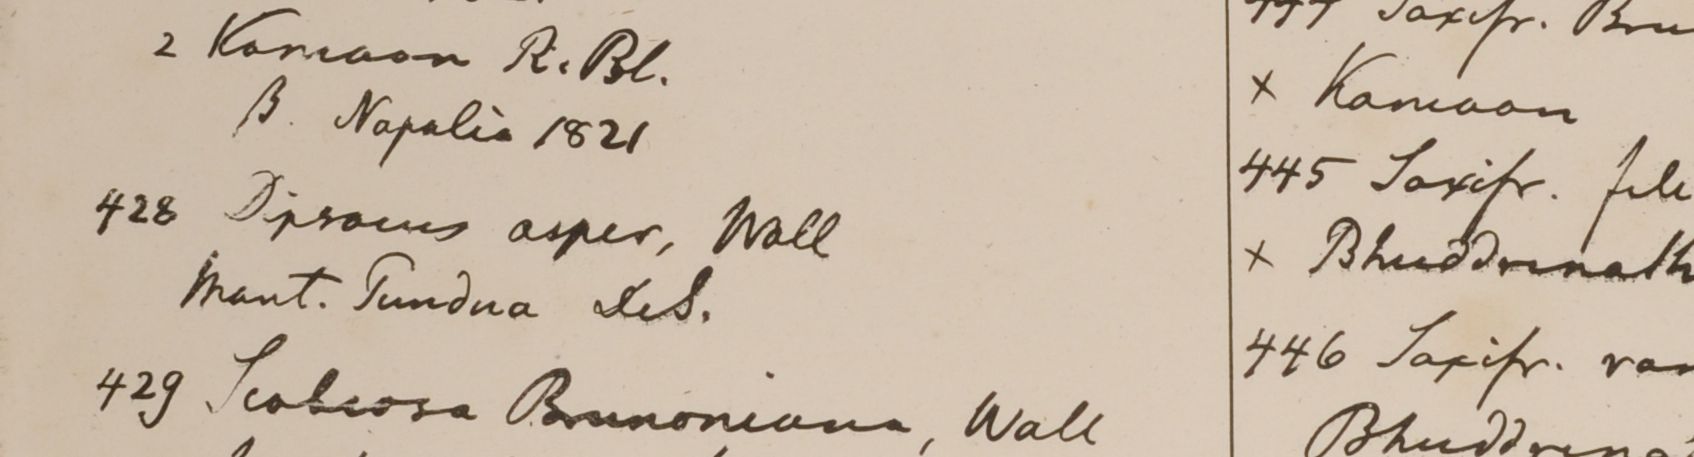 2 Kamaon R. Bl.
β. Napalia 1821
428 Dipsacus asper, Wall
Mont. Tundua
429 Scabiosa Brunoniana, Wall
444 Saxifr. Bru
x Kamaon
445 Saxifr. fili
x Bhuddrinath
446 Saxifr. ram
Bhuddrinat